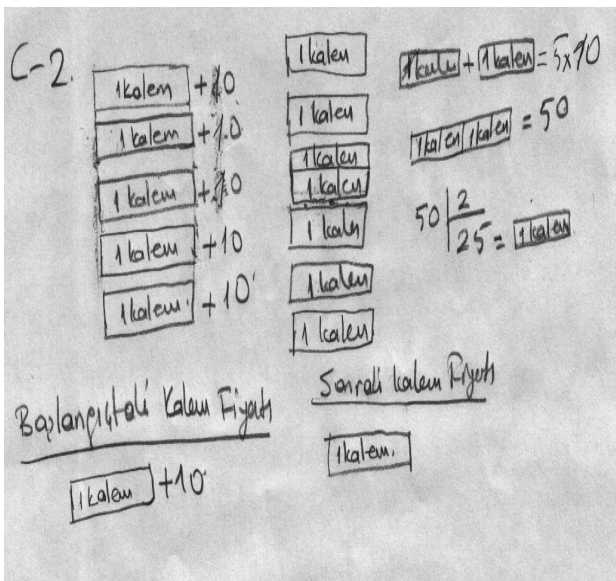 C-2.
1kalem +10
1 kalem +10
1 kalem +10
1 kalem +10
1kalem. +10
1kalem
1 kalem
1kalem
1 kalem
1 kalem
1 kalem
1 kalem
1kalem + 1kalem = 5x10
1kalem 1kalem = 50
50 | 2
25 = 1kalem
Başlangıçtaki Kalem Fiyatı
1kalem +10
Sonraki kalem Fiyatı
1kalem.